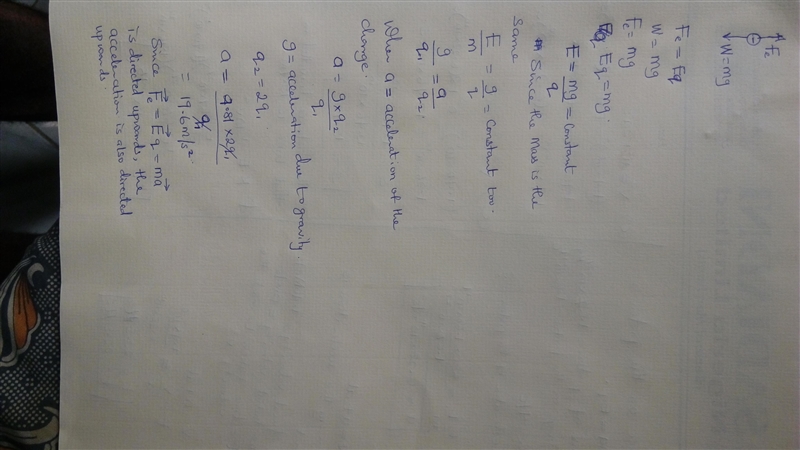 Fe
W=mg
Fe = Eq
W = mg
Fe = mg
Eq Eq = mg.
E = mg/q = Constant.
m Since the Mass is the
Same
E/m = g/q = Constant too.
g/q₁ = a/q₂
When a = acceleration of the
charge.
a = g×q₂/q₁
g = acceleration due to gravity.
q₂ = 2q₁
a = 9.81×2q₁/q₁
= 19.6m/s².
Since F⃗e = E⃗q = ma⃗
is directed upwards, the
acceleration is also directed
upwards